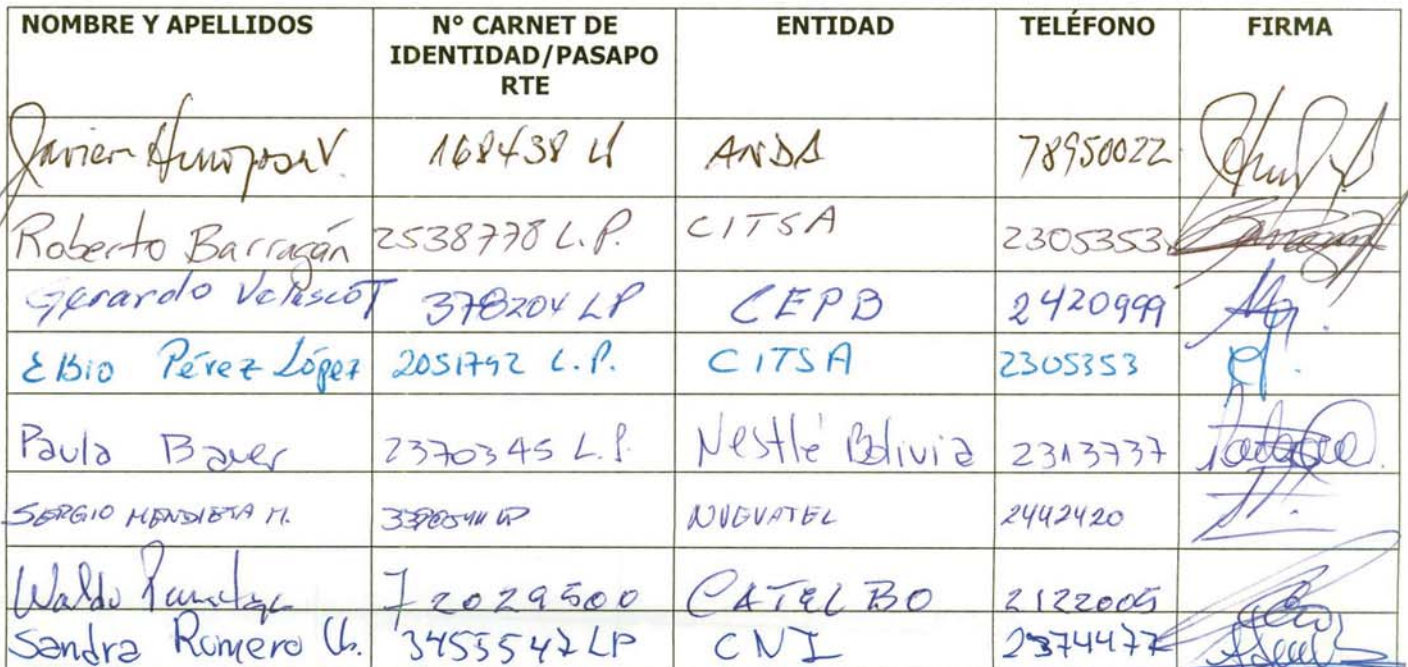 NOMBRE Y APELLIDOS N° CARNET DE IDENTIDAD/PASAPORTE ENTIDAD TELÉFONO FIRMA
Javier Hinojosa V. ANDA 78950022
Roberto Barragán 2538778 L.P. CITSA 2305353
Gerardo Velasco T 378204 LP CEPB 2420999
Elbio Pérez López 2051792 L.P. CITSA 2305353
Paula Bauer 2370345 L.P. Nestlé Bolivia 2313737
SERGIO MENDIETA M. NUEVATEL 2442420
Waldo 72029500 CATELBO 2122005
Sandra Romero Ch. 3455547 LP CNI 2374477